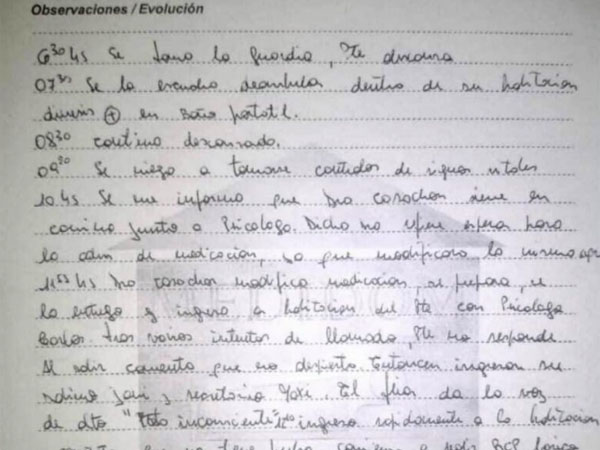 Observaciones / Evolución
6:30 hs Se tomo la guardia, Pte descansa
07:30 Se lo escucha deambular dentro de su habitacion
diuresis (+) en baño portatil.
08:30 continua descansando.
09:30 Se niega a tomarse controles de signos vitales
10 hs Se me informo que Dra Cosachov viene en
camino junto a Psicologo. Dicha me espere para
la adm de medicacion, ya que modificara la misma
11:55 hs Dra Cosachov modifica medicacion, se prepara, se
lo entrega y ingresa a habitacion del Pte con Psicologo
tras varios intentos de llamado, Pte no responde
Al salir comenta que no desperto. Entonces ingresan su
y secretario Maxi. El da la voz
de alto "Esta inconsciente" ingreso rapidamente a la habitacion